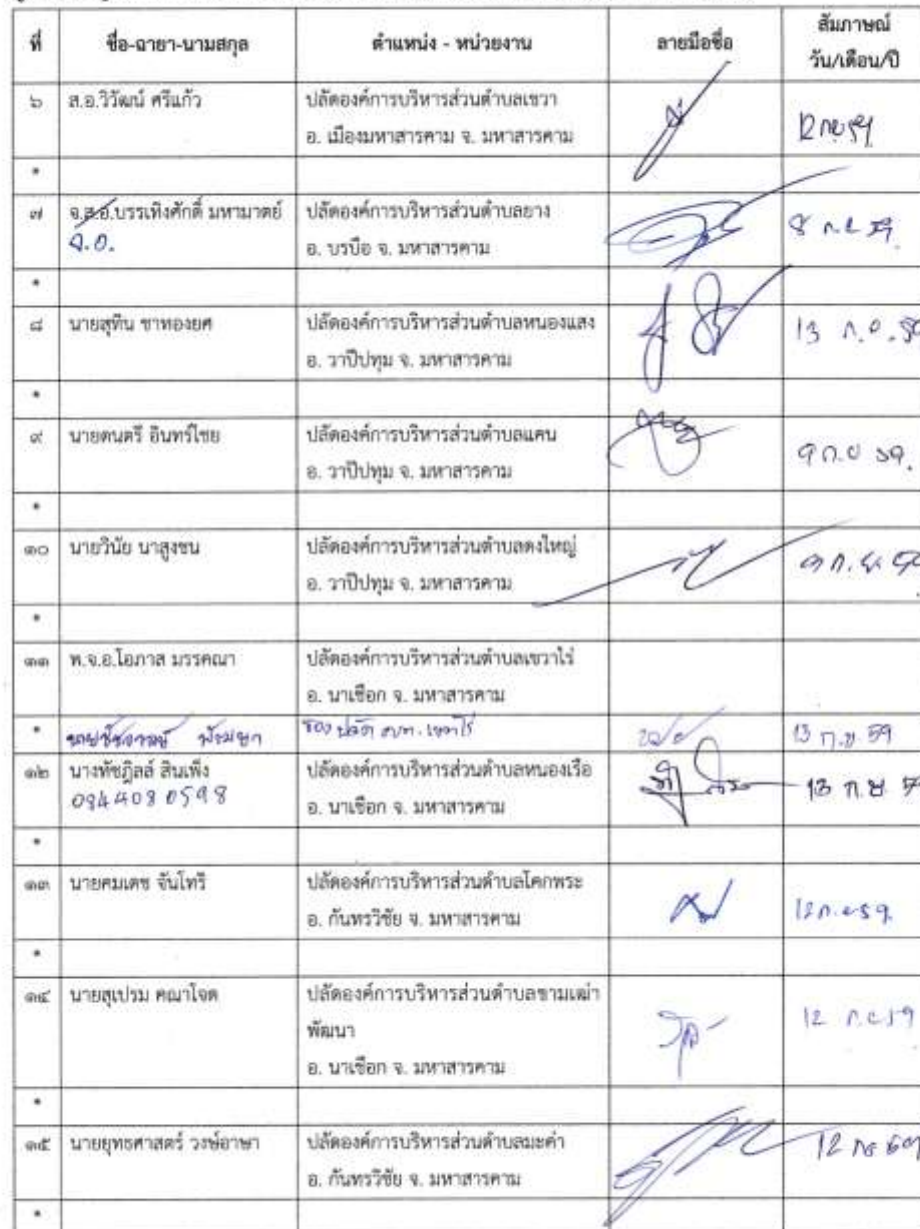 ที่ ชื่อ-ฉายา-นามสกุล ตำแหน่ง - หน่วยงาน ลายมือชื่อ สัมภาษณ์
วัน/เดือน/ปี
๖ ส.อ.วิวัฒน์ ศรีแก้ว ปลัดองค์การบริหารส่วนตำบลเขวา
อ. เมืองมหาสารคาม จ. มหาสารคาม
*
๗ จ.ส.อ.บรรเทิงศักดิ์ มหามาตย์ ปลัดองค์การบริหารส่วนตำบลยาง
จ.อ. อ. บรบือ จ. มหาสารคาม
*
๘ นายสุทิน ชาทองยศ ปลัดองค์การบริหารส่วนตำบลหนองแสง 13 ก.ย. 59
อ. วาปีปทุม จ. มหาสารคาม
*
๙ นายดนตรี อินทร์ไชย ปลัดองค์การบริหารส่วนตำบลแคน
อ. วาปีปทุม จ. มหาสารคาม 9 ก.ย 59.
*
๑๐ นายวินัย นาสูงชน ปลัดองค์การบริหารส่วนตำบลดงใหญ่
อ. วาปีปทุม จ. มหาสารคาม
*
๑๑ พ.จ.อ.โอภาส มรรคณา ปลัดองค์การบริหารส่วนตำบลเขวาไร่
อ. นาเชือก จ. มหาสารคาม
* รองปลัด อบต. เขวาไร่ 13 ก.ย. 59
๑๒ นางทัชฎิลล์ สินเพ็ง ปลัดองค์การบริหารส่วนตำบลหนองเรือ 13 ก.ย 59
0844080598 อ. นาเชือก จ. มหาสารคาม
*
๑๓ นายคมเดช จันโทริ ปลัดองค์การบริหารส่วนตำบลโคกพระ
อ. กันทรวิชัย จ. มหาสารคาม 12 ก.ย 59
*
๑๔ นายสุเปรม คณาโจด ปลัดองค์การบริหารส่วนตำบลขามเฒ่า 12 ก.ย 59
พัฒนา
อ. นาเชือก จ. มหาสารคาม
*
๑๕ นายยุทธศาสตร์ วงษ์อาษา ปลัดองค์การบริหารส่วนตำบลมะค่า
อ. กันทรวิชัย จ. มหาสารคาม
*